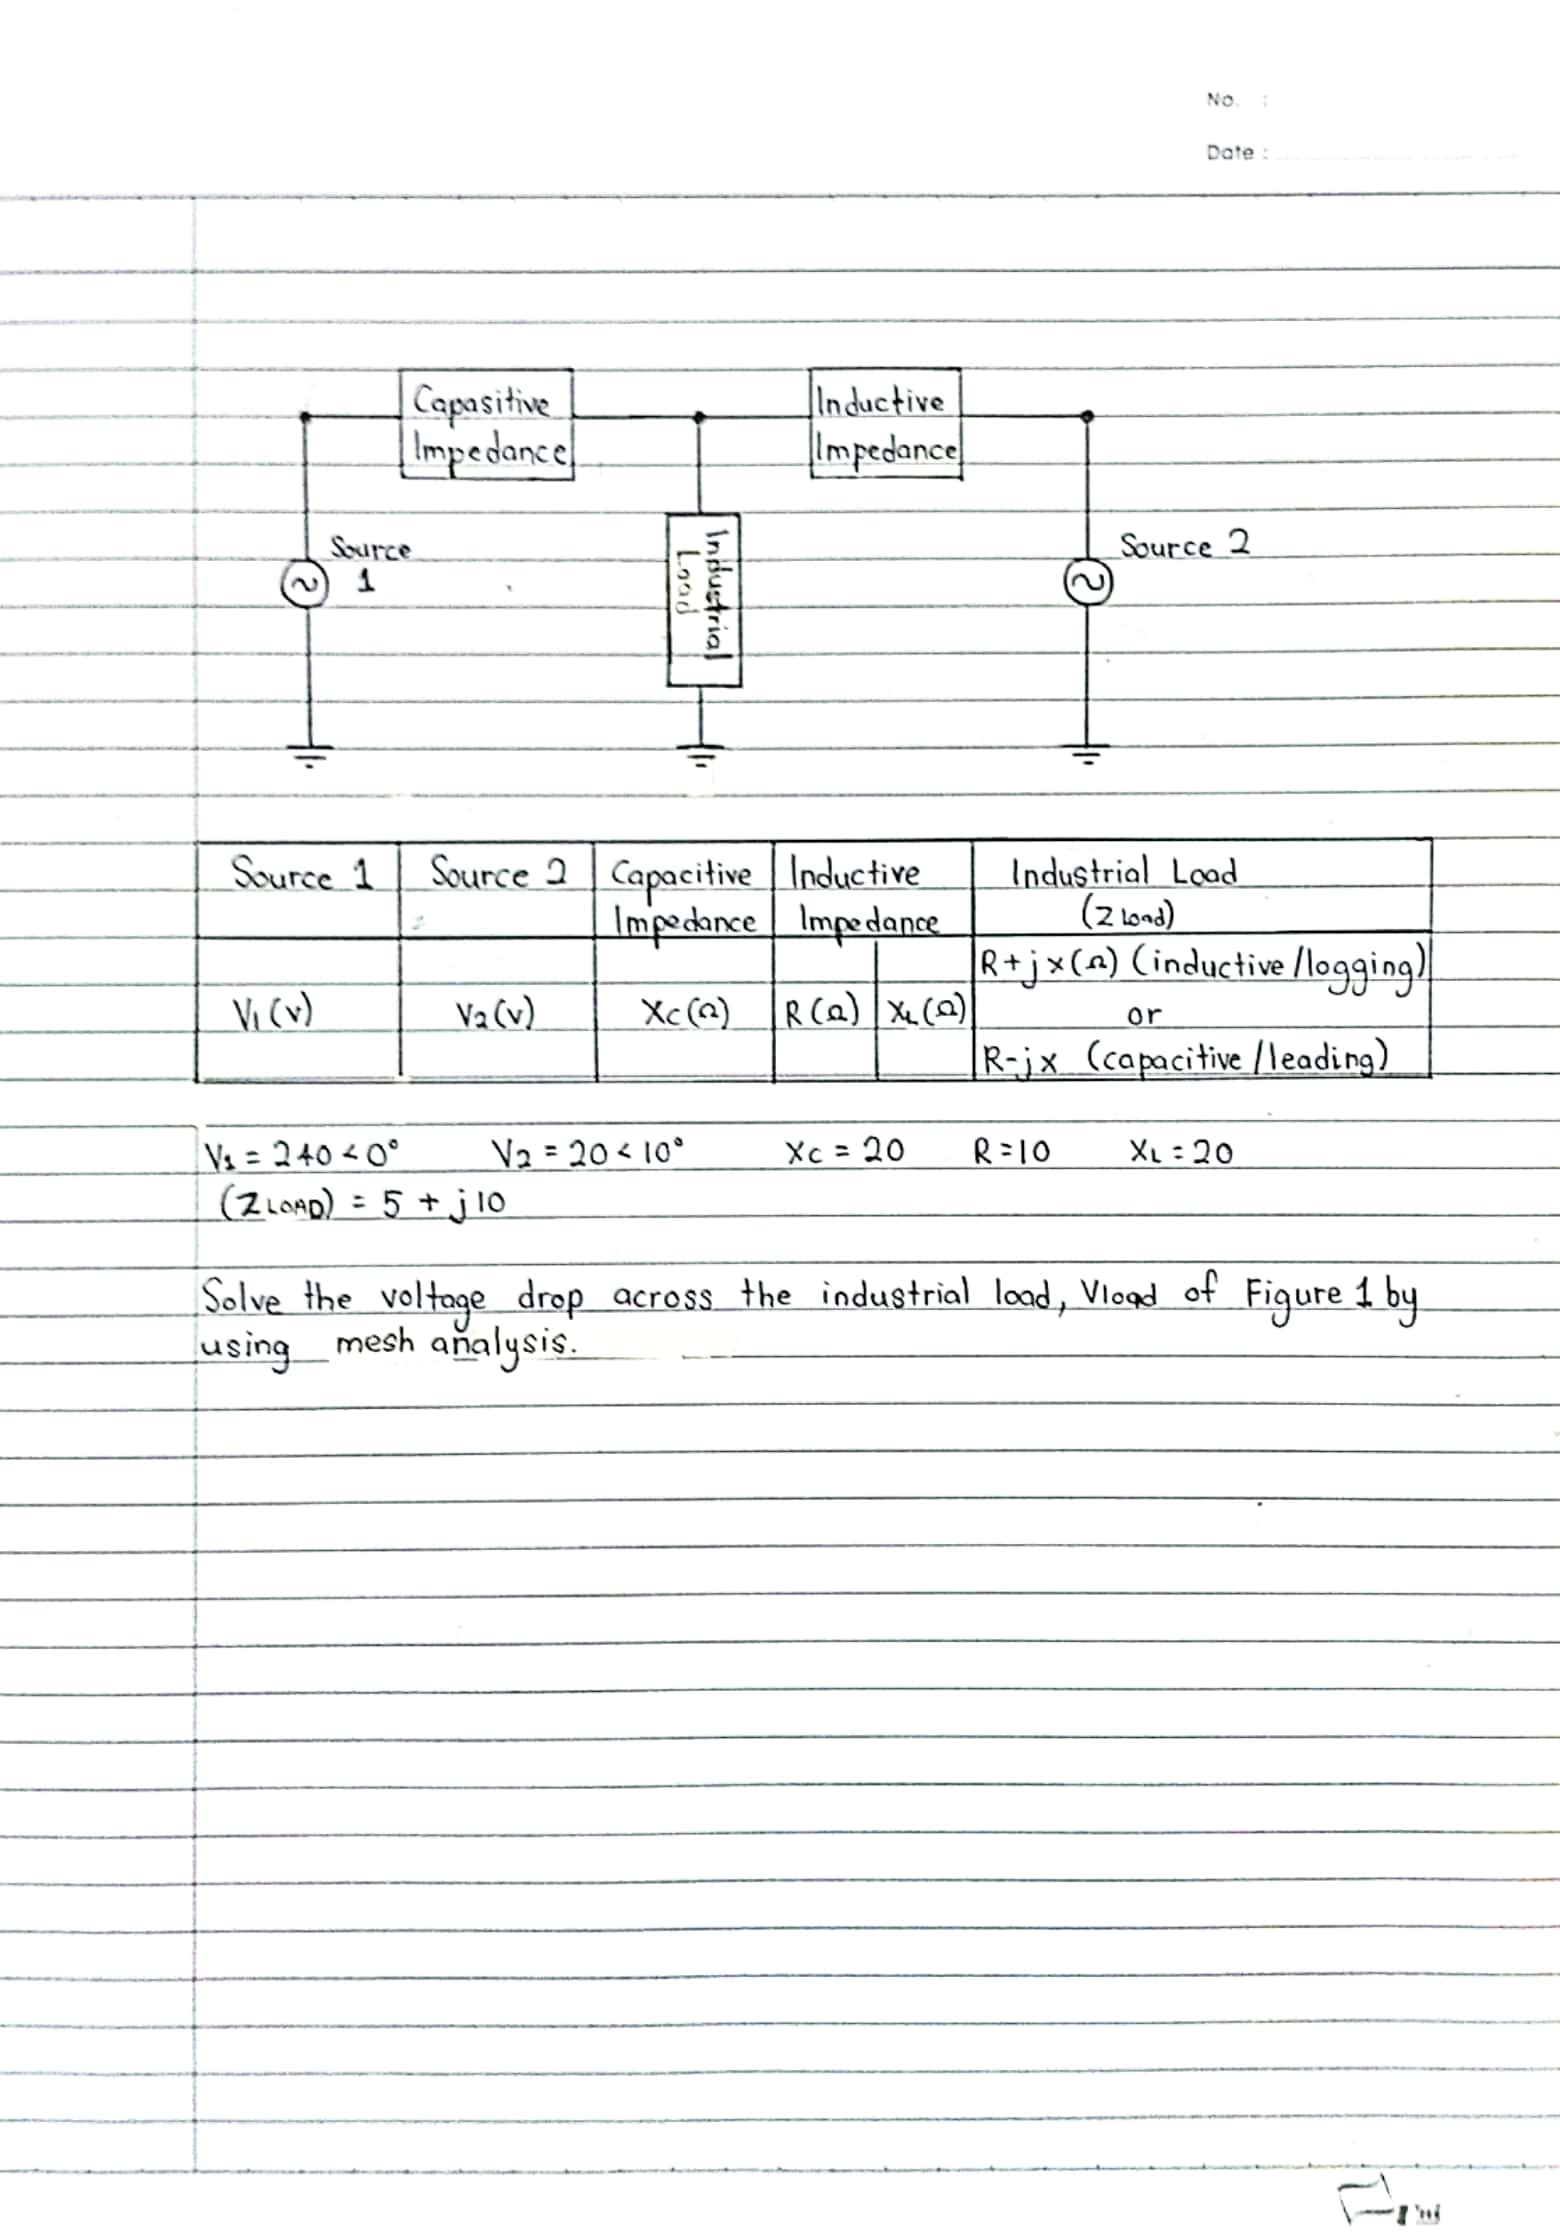 No. :
Date :
Capasitive
Impedance
Inductive
Impedance
Source
1
Industrial
Load
Source 2
Source 1 Source 2 Capacitive Inductive Industrial Load
Impedance Impedance (Z Load)
R+jx(Ω) (inductive/logging)
V₁(v) V₂(v) Xc(Ω) R(Ω) XL(Ω) or
R-jx (capacitive/leading)
V₁ = 240<0° V₂ = 20<10° Xc = 20 R=10 XL=20
(ZLOAD) = 5 + j10
Solve the voltage drop across the industrial load, Vload of Figure 1 by
using mesh analysis.